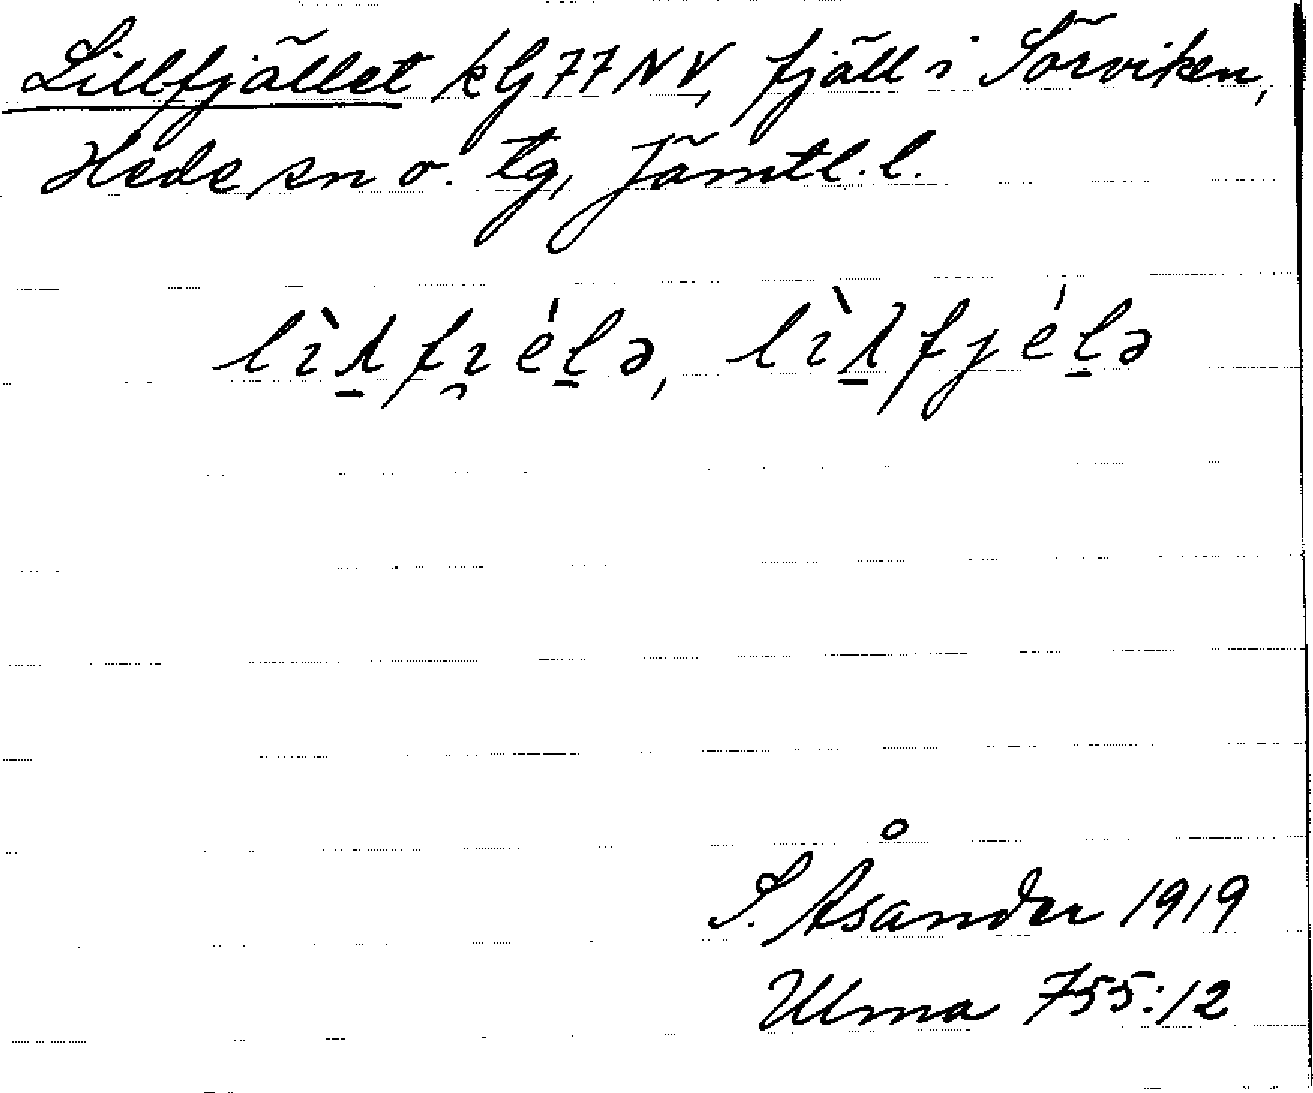 Lillfjället kG77NV, fjäll i Sörviken,
Hede sn o. tg, Jämtl. l.
S. Åsander 1919
Ulma 755:12